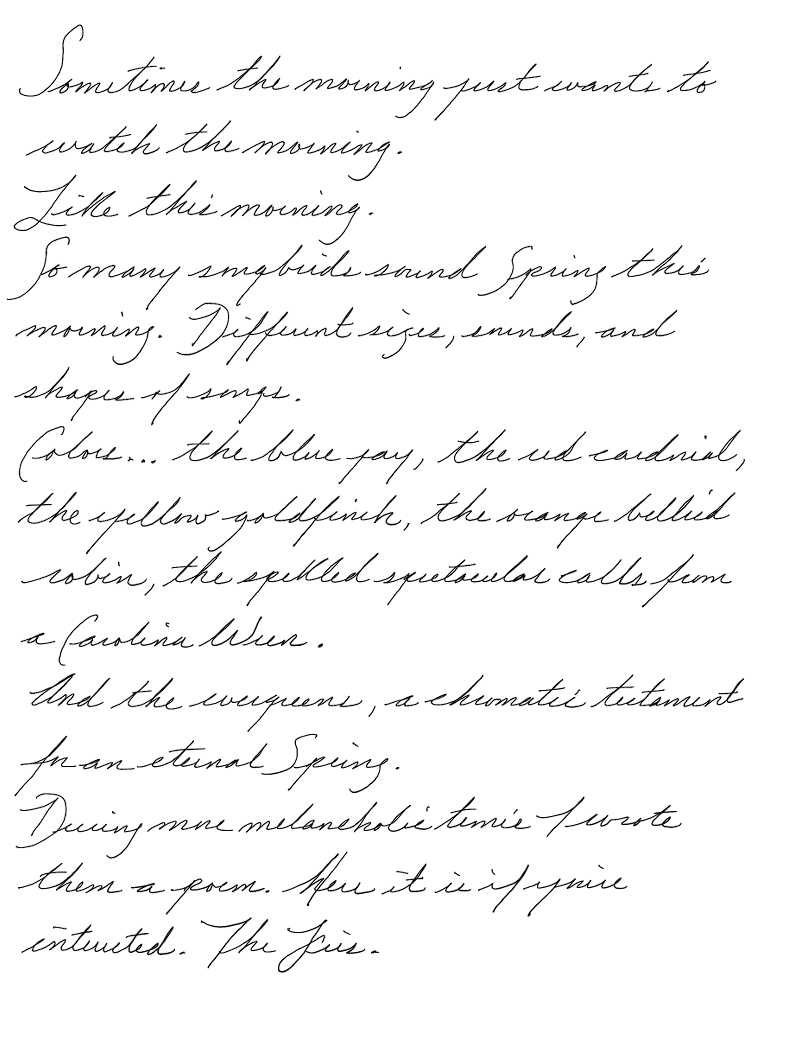 Sometimes the morning just wants to
watch the morning.
Like this morning.
So many songbirds sound Spring this
morning. Different sizes, sounds, and
shapes of songs.
Colors... the blue jay, the red cardnial,
the yellow goldfinch, the orange bellied
robin, the spekled spectacular calls from
a Carolina Wren.
And the evergreens, a chromatic testament
for an eternal Spring.
During more melancholic times I wrote
them a poem. Here it is if you're
interested. The Firs.